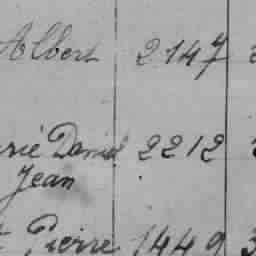 Albert 2147
Daniel 2212
Jean
Pierre 1449 3